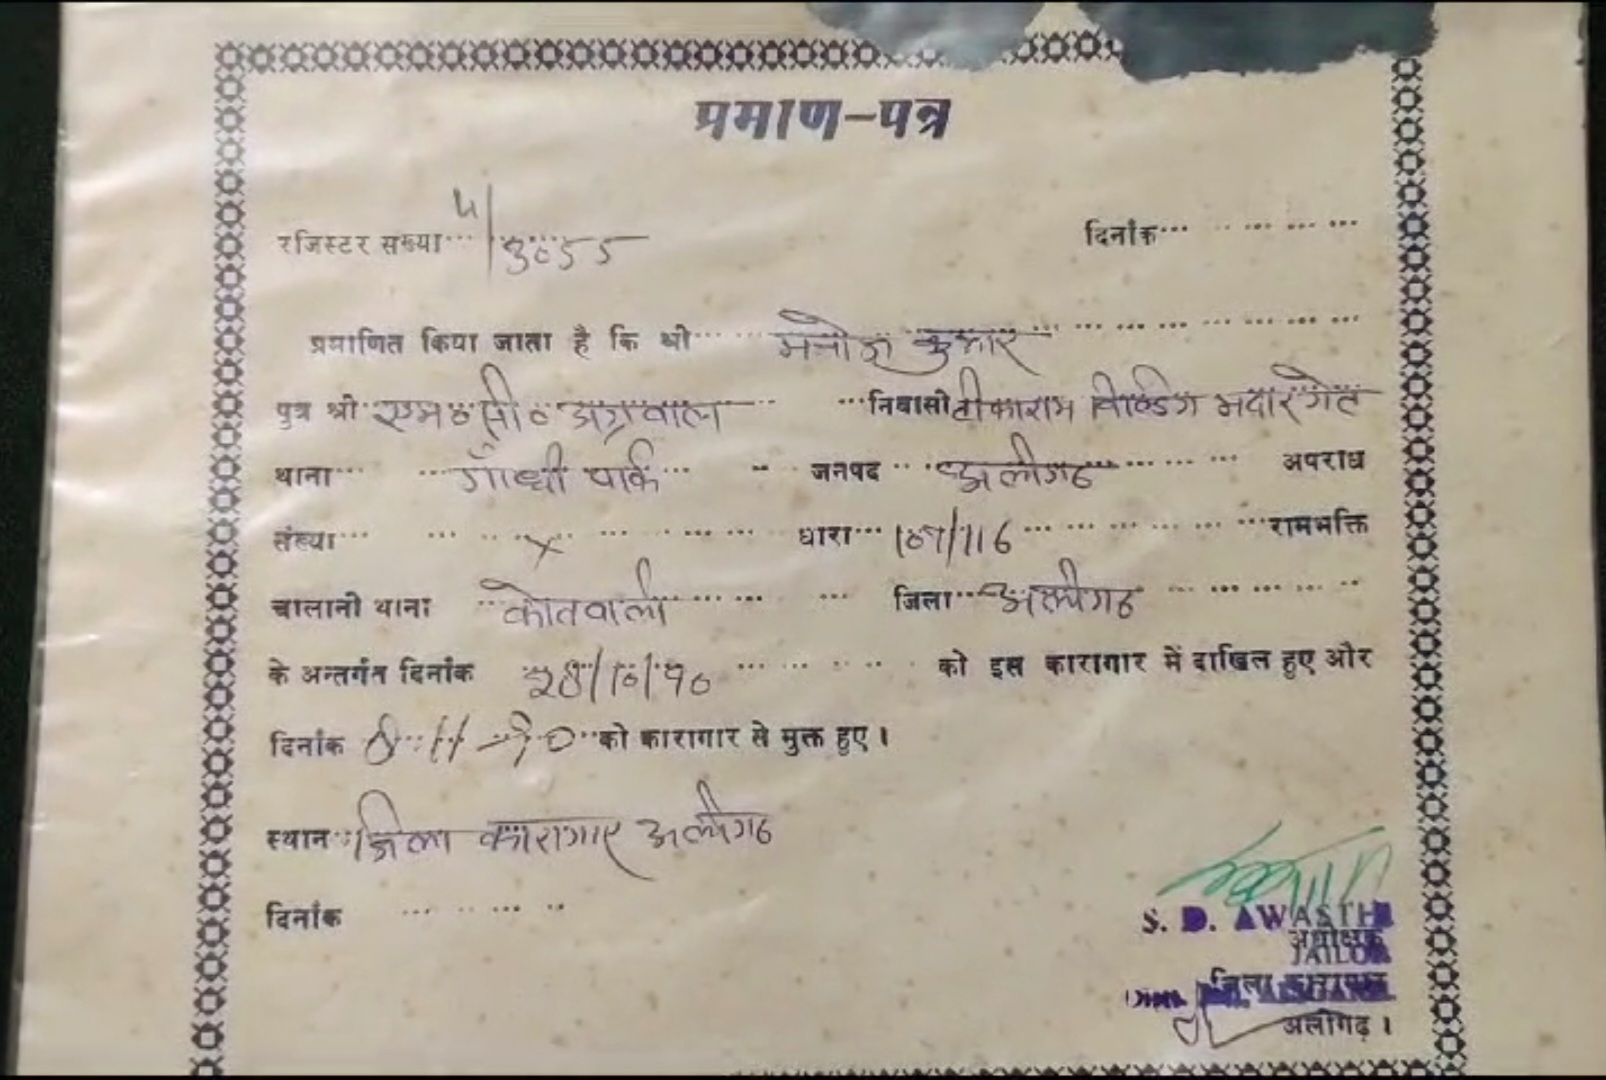 प्रमाण-पत्र
रजिस्टर संख्या 4/3055 दिनांक
प्रमाणित किया जाता है कि श्री मनोज कुमार
पुत्र श्री एम० सी० अग्रवाल निवासी टीकाराम बिल्डिंग मदारगेट
थाना गाँधी पार्क जनपद अलीगढ अपराध
संख्या × धारा 107/116 रामभक्ति
चालानी थाना कोतवाली जिला अलीगढ
के अन्तर्गत दिनांक 28/10/90 को इस कारागार में दाखिल हुए और
दिनांक 8-11-90 को कारागार से मुक्त हुए।
स्थान जिला कारागार अलीगढ
दिनांक
S. D. AWASTHI
अधीक्षक
JAILOR
जिला कारागार
अलीगढ़।